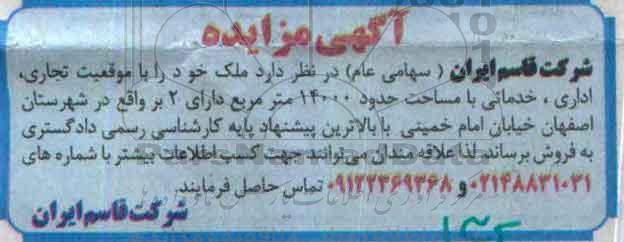 آگهی مزایده
شرکت قاسم ایران ( سهامی عام) در نظر دارد ملک خو د را با موقعیت تجاری،
اداری ، خدماتی با مساحت حدود ۱۴۰۰۰ متر مربع دارای ۲ بر واقع در شهرستان
اصفهان خیابان امام خمینی با بالاترین پیشنهاد پایه کارشناسی رسمی دادگستری
به فروش برساند، لذا علاقه مندان می‌توانند جهت کسب اطلاعات بیشتر با شماره های
۰۲۱۴۸۸۳۱۰۳۱ و ۰۹۱۲۲۳۶۹۳۶۸ تماس حاصل فرمایند.
شرکت قاسم ایران